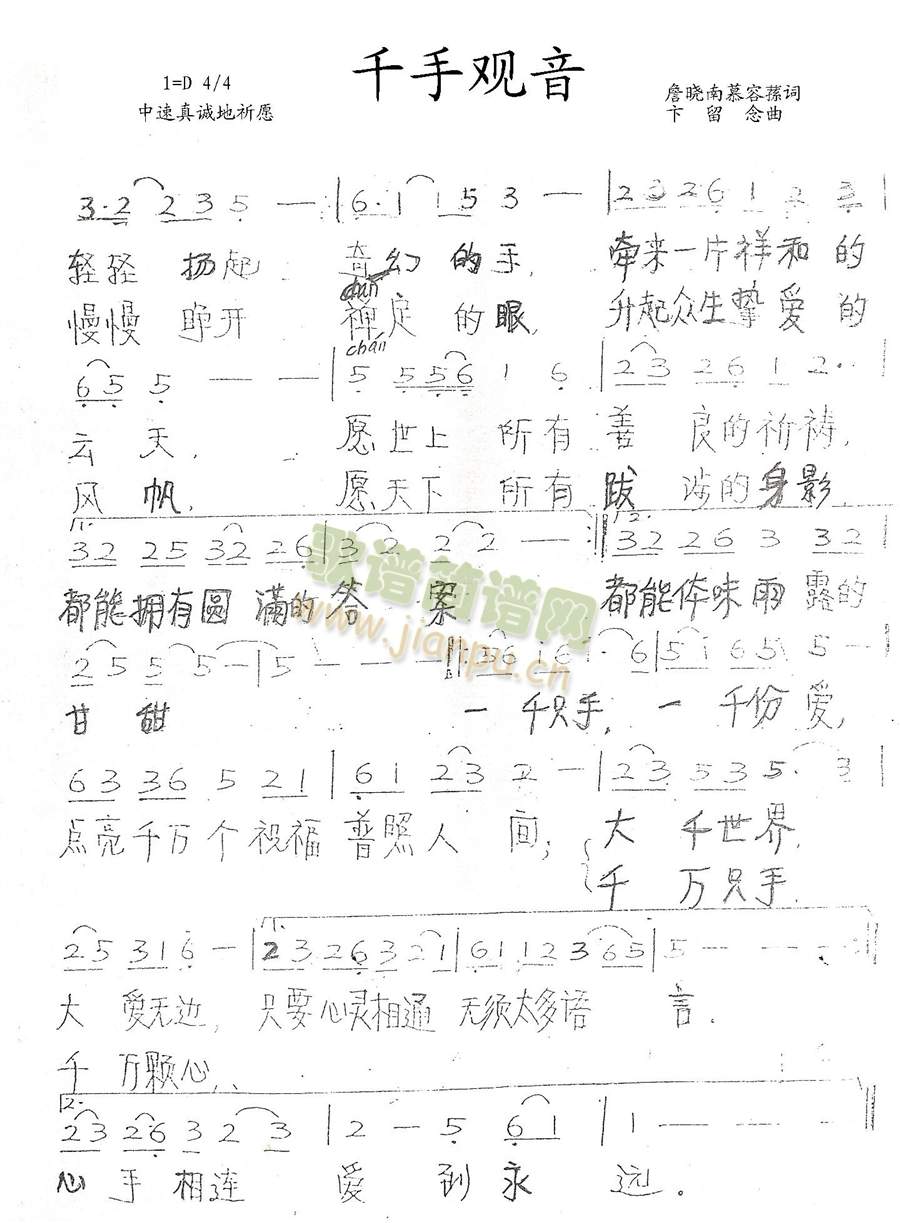 千手观音
1=D 4/4
中速真诚地祈愿
詹晓南慕容荪词
卞 留 念曲
3·2 2 3 5 — | 6·1 1 5 3 — | 2 3 2 6 1 2 3 |
轻轻 扬起 奇幻 的手, 牵来一片祥和的
chán
慢慢 睁开 禅定 的眼, 升起众生挚爱的
chán
6 5 5 — — | 5 5 5 6 1 6 | 2 3 2 6 1 2·
云天, 愿世上 所有善 良的祈祷,
风帆, 愿天下 所有跋 涉的身影,
1. 3 2 2 5 3 2 2 6 | 3 2 2 2 — :‖ 2. 3 2 2 6 3 3 2 |
都能拥有圆 满的答 案 都能体味雨 露的
2 5 5 5 — | 5 — — — ‖: 5 6 1 6 · 6 | 5 1 6 5 5 —
甘 甜 一 千只手, 一 千份爱,
6 3 3 6 5 2 1 | 6 1 2 3 2 — | 2 3 5 3 5· 3 |
点亮千万个祝福 普照人 间; 大 千世界
千 万只手
2 5 3 1 6 — | 1. 2 3 2 6 3 2 1 | 6 1 1 2 3 6 5 | 5 — — — :‖
大 爱无边, 只要心灵相通 无须太多语 言.
千 万颗心,
2. 2 3 2 6 3 2 3 | 2 — 5 6 1 | 1 — — — ‖
心 手 相连 爱 到 永 远。
歌谱简谱网
www.jianpu.cn